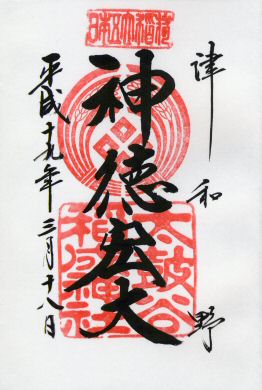 津和野
日本五大稲荷
神徳宏大
太鼓谷
稲成神社
平成十九年三月十八日